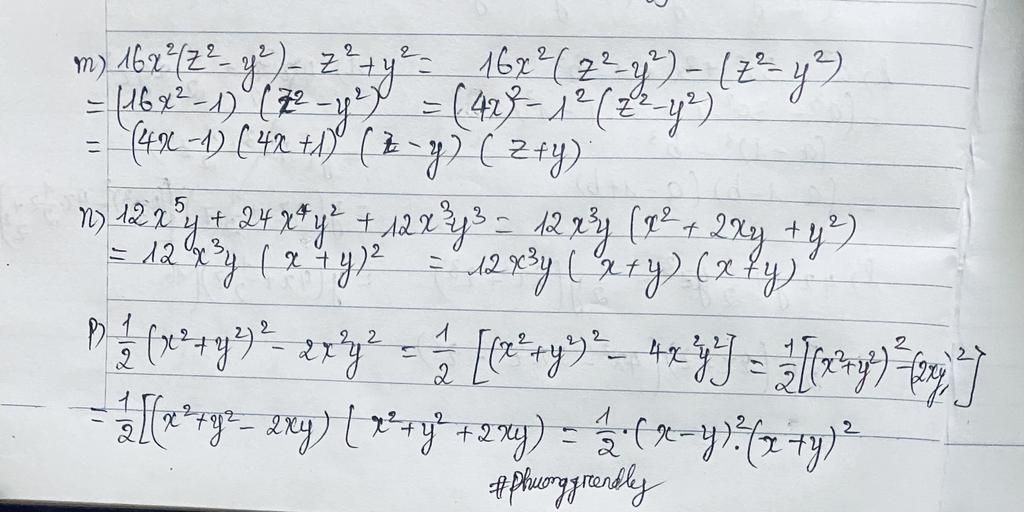 m) 16x²(z² - y²) - z² + y² = 16x²(z² - y²) - (z² - y²)
= (16x² - 1) (z² - y²) = (4x)² - 1² (z² - y²)
= (4x - 1) (4x + 1) (z - y) (z + y)
n) 12x⁵y + 24x⁴y² + 12x³y³ = 12x³y (x² + 2xy + y²)
= 12x³y (x + y)² = 12x³y (x + y) (x + y)
p) 1/2 (x² + y²)² - 2x²y² = 1/2 [(x² + y²)² - 4x²y²] = 1/2 [(x² + y²)² - (2xy)²]
= 1/2 [(x² + y² - 2xy) (x² + y² + 2xy) = 1/2 · (x - y)² · (x + y)²